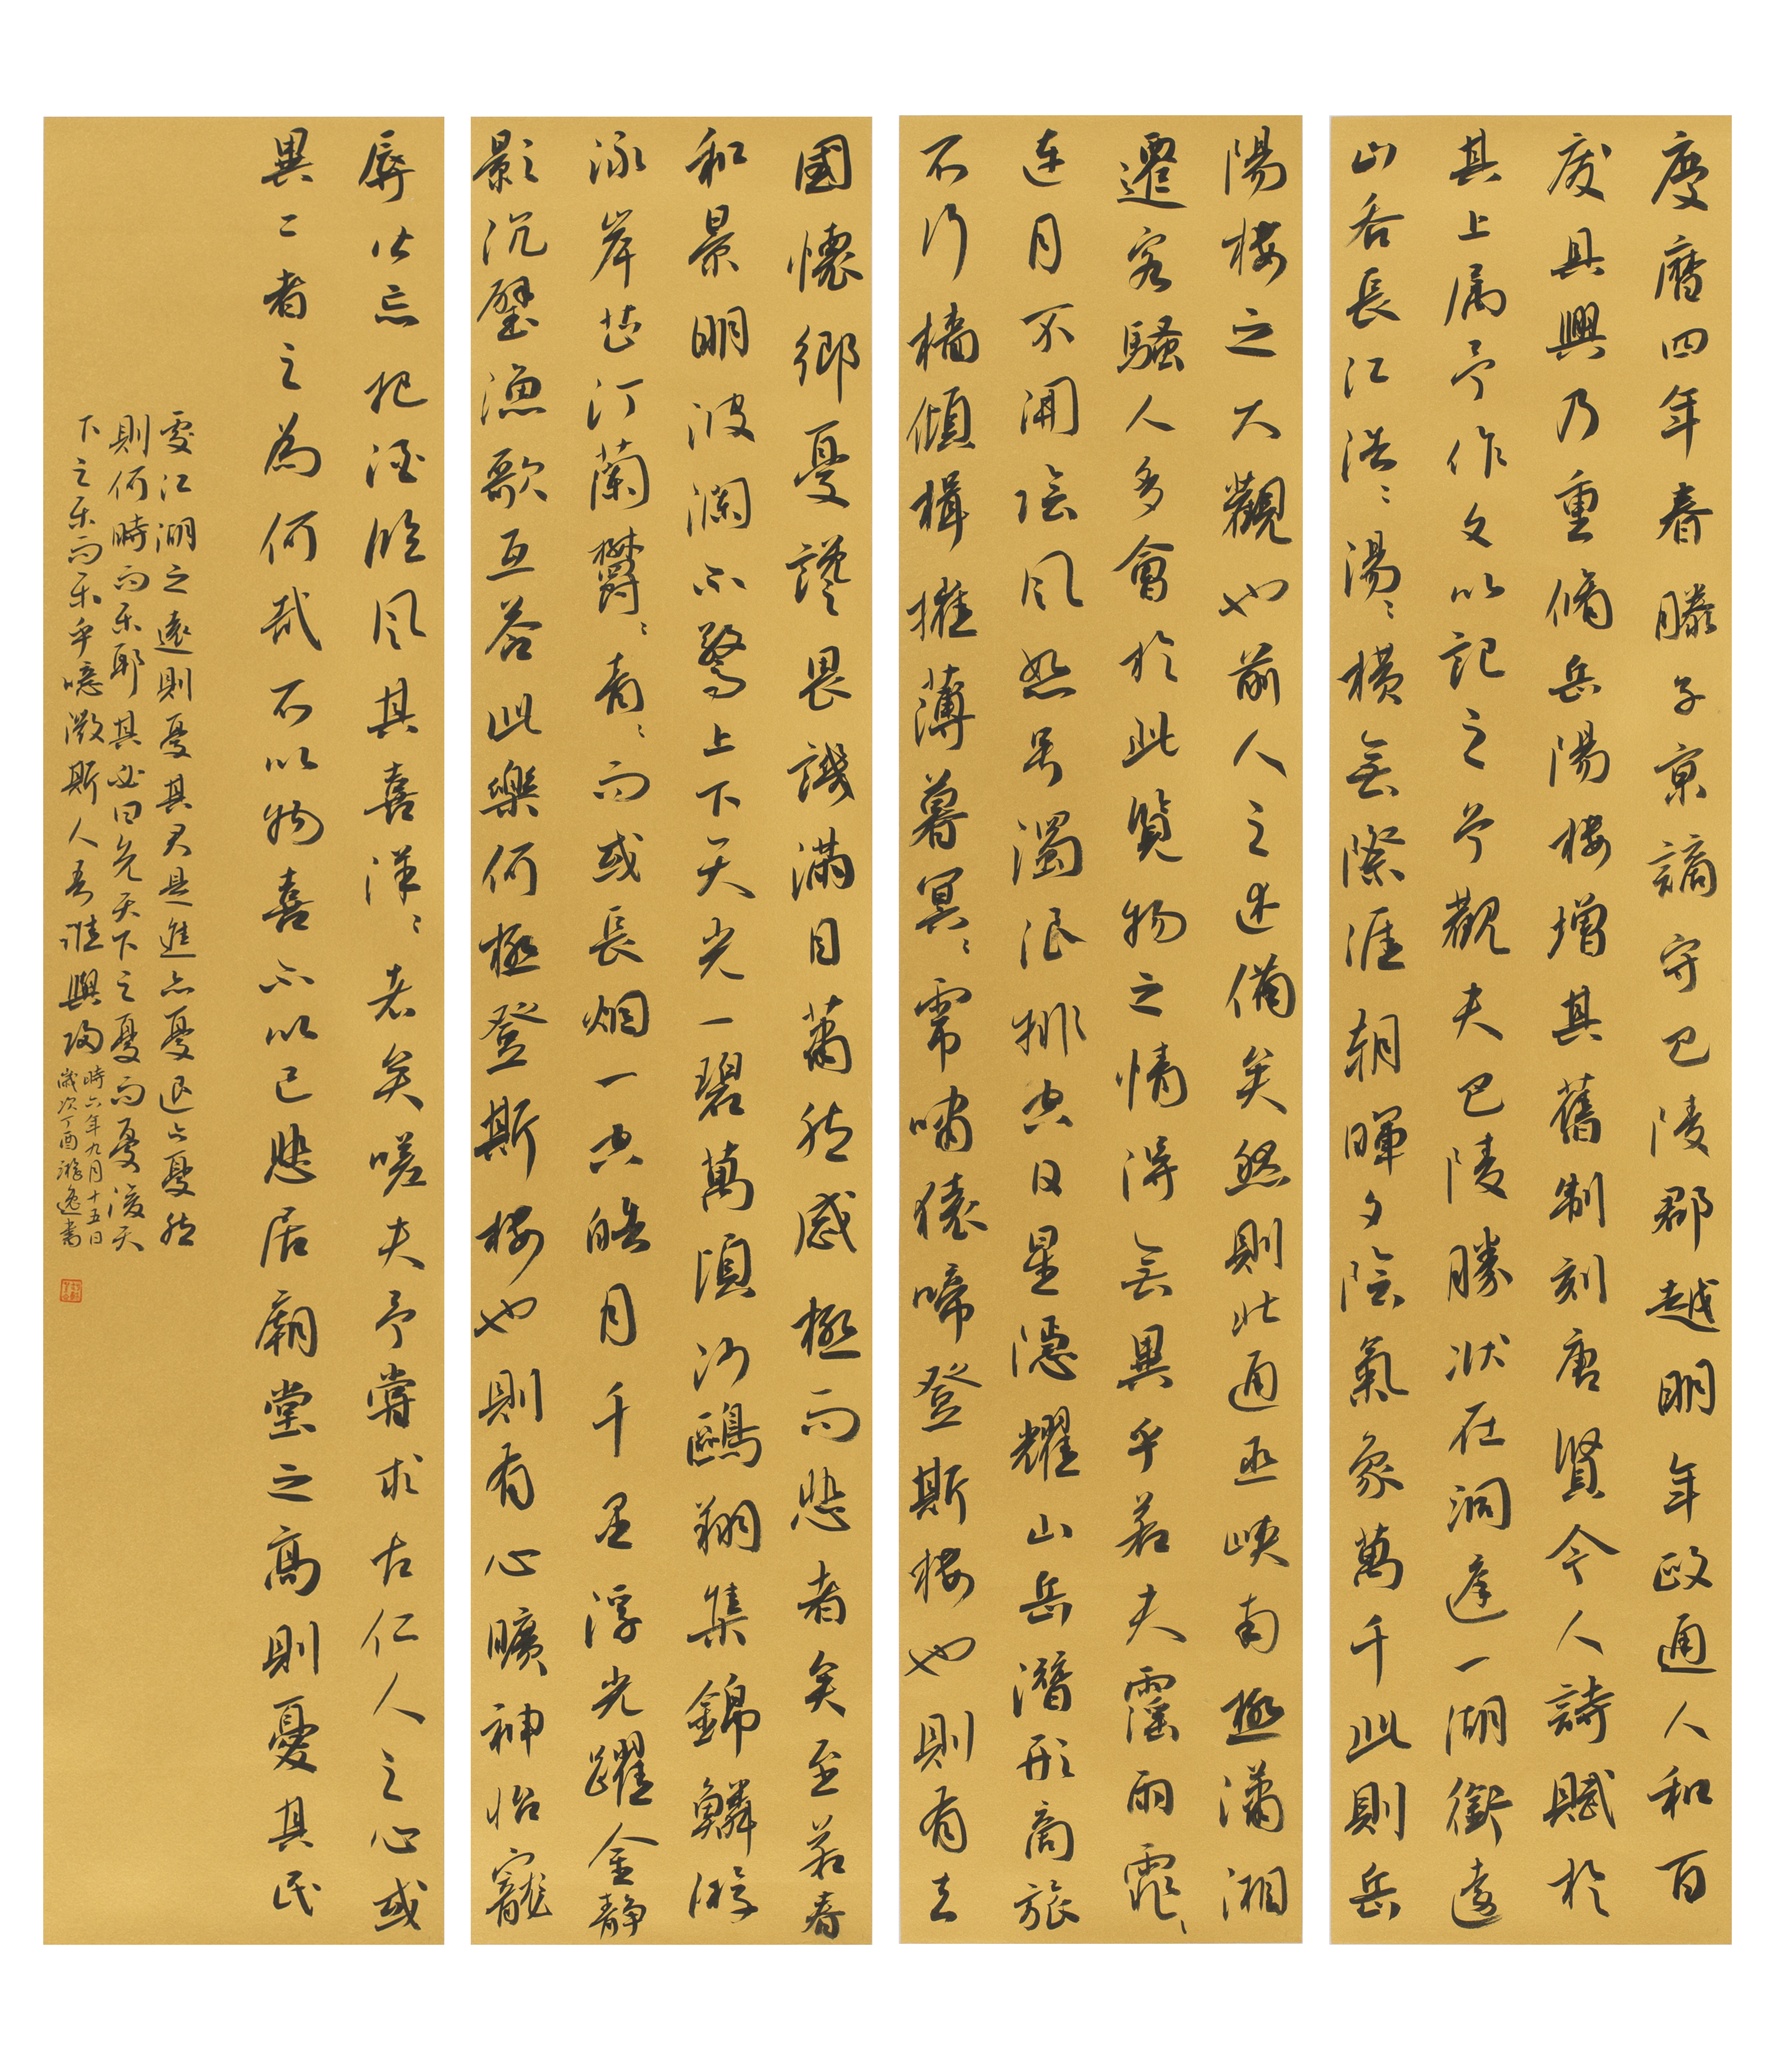 慶曆四年春滕子京謫守巴陵郡越明年政通人和百
废具興乃重脩岳陽楼增其舊制刻唐賢今人詩賦於
其上属予作文以記之予觀夫巴陵勝状在洞庭一湖銜遠
山吞長江浩〻湯〻横無際涯朝暉夕陰氣象萬千此則岳
陽楼之大觀也前人之述備矣然則北通巫峡南極瀟湘
遷客騷人多會於此覧物之情得無異乎若夫霪雨霏〻
連月不開陰風怒号濁浪排空日星隱耀山岳潛形商旅
不行檣傾楫摧薄暮冥〻虎嘯猿啼登斯楼也則有去
國懷鄉憂讒畏譏滿目蕭然感極而悲者矣至若春
和景明波瀾不驚上下天光一碧萬頃沙鷗翔集錦鱗游
泳岸芷汀蘭欝〻青〻而或長烟一空皓月千里浮光躍金静
影沉璧漁歌互答此樂何極登斯楼也則有心曠神怡寵
辱皆忘把酒臨風其喜洋〻者矣嗟夫予嘗求古仁人之心或
異二者之為何哉不以物喜不以己悲居廟堂之高則憂其民
處江湖之遠則憂其君是進亦憂退亦憂然
則何時而乐耶其必曰先天下之憂而憂後天
下之乐而乐乎噫微斯人吾誰與歸
時六年九月十五日
歲次丁酉游逸書